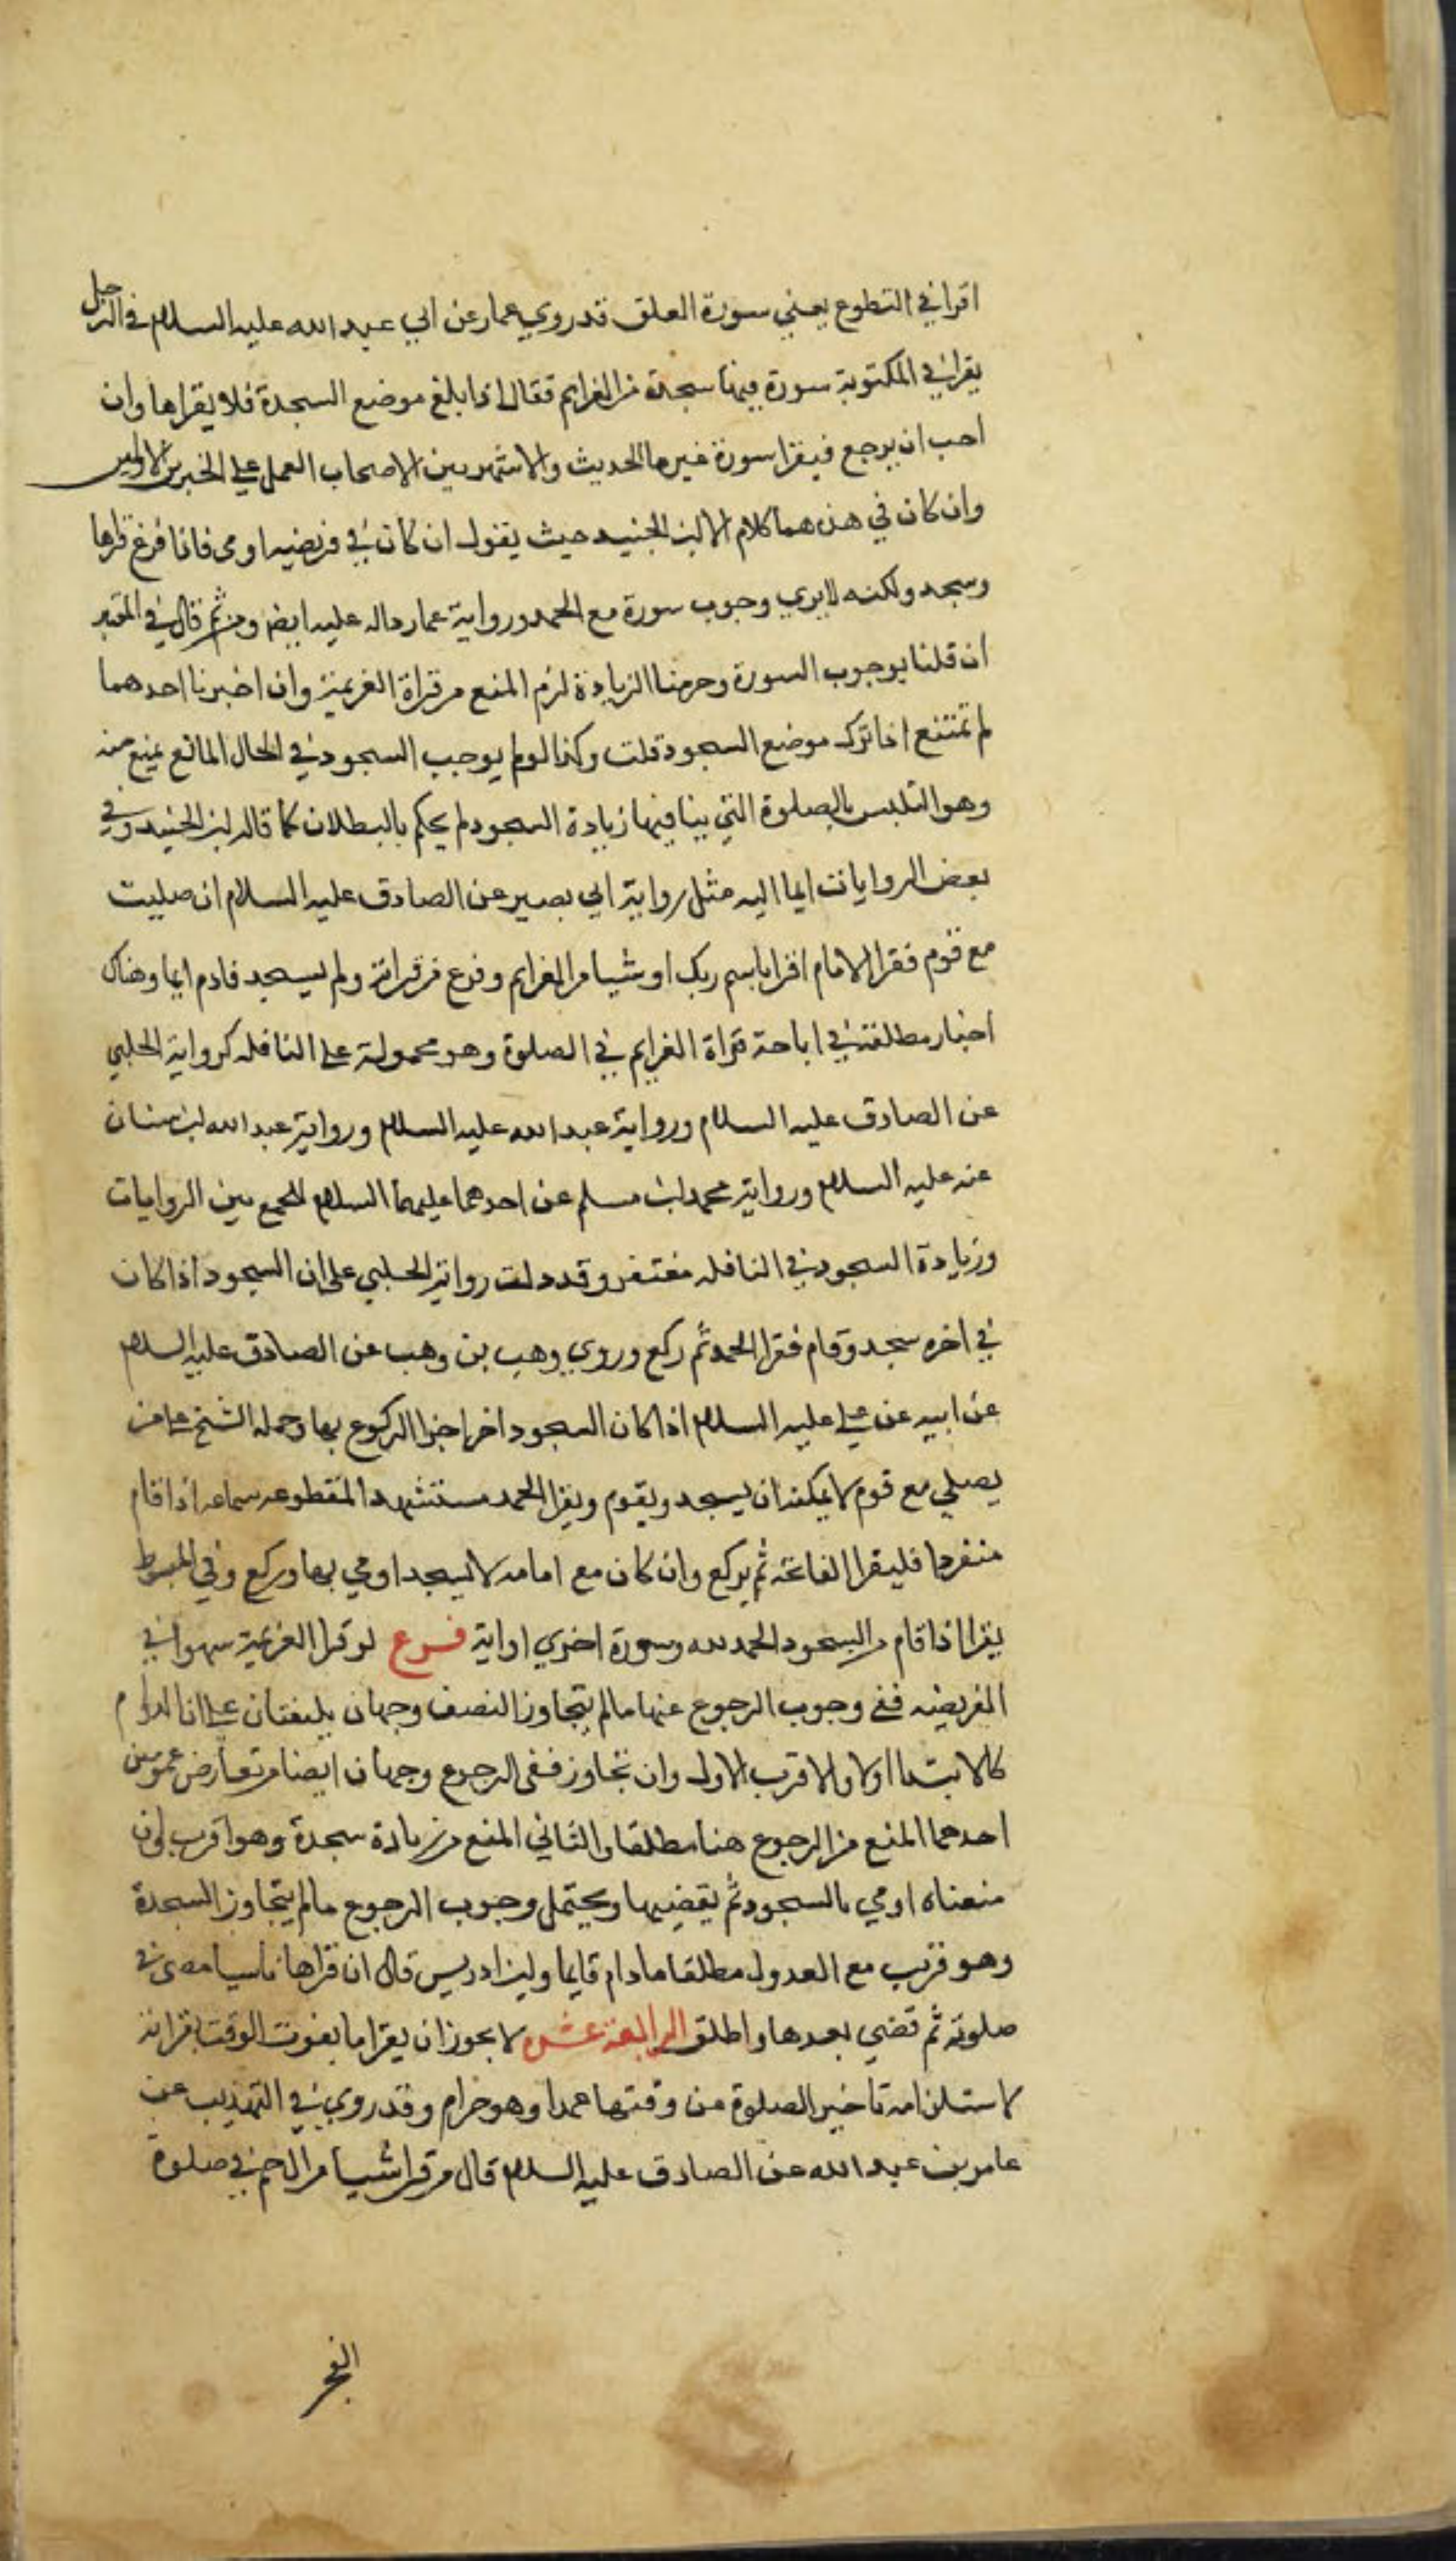 اقرا في التطوع يعني سورة العلق قد روي عمار عن ابي عبد الله عليه السلام في الرجل
يقرا في المكتوبة سورة فيها سجدة من العزايم فقال اذا بلغ موضع السجدة فلا يقراها وان
احب ان يرجع فيقرا سورة غيرها الحديث والاشهر بين الاصحاب العمل علي الخبرين الاولين
وان كان في هن هما كلام الا ابن الجنيد حيث يقول ان كان في فريضه اومى فاذا فرغ قراها
وسجد ولكنه لا يري وجوب سورة مع الحمد ورواية عمار داله عليه ايضا ومن ثم قال في المعتبر
ان قلنا بوجوب السورة وحرمنا الزيادة لزم المنع من قراة العزيمة وان اخبرنا احدهما
لم تمتنع اذا ترك موضع السجود قلت وكذا لو لم يوجب السجود في الحال المانع يمنع منه
وهو التلبس بالصلوة التي ينافيها زيادة السجود لم يحكم بالبطلان كما قاله ابن الجنيد وفي
بعض الروايات ايما اليه مثل رواية ابي بصير عن الصادق عليه السلام ان صليت
مع قوم فقرا الامام اقرا باسم ربك او شيا من العزايم وفرغ من قراته ولم يسجد فادم ايما وهناك
اخبار مطلقة في اباحة قراة العزايم في الصلوة وهو محمولة علي النافله كرواية الحلبي
عن الصادق عليه السلام ورواية عبد الله عليه السلام ورواية عبد الله ابن سنان
عنه عليه السلام ورواية محمد ابن مسلم عن احدهما عليهما السلام للجمع بين الروايات
وزيادة السجود في النافله مغتفر وقد دلت رواية الحلبي علي ان السجود اذا كان
في اخره سجد وقام فقرا الحمد ثم ركع وروي وهب بن وهب عن الصادق عليه السلام
عن ابيه عن علي عليه السلام اذا كان السجود اخرا اجزا الركوع بها وحمله الشيخ علي من
يصلي مع قوم لا يمكنه ان يسجد ويقوم ويقرا الحمد مستشهدا المقطوعه سماعه اذا قام
منفردا فليقرا الفاتحه ثم يركع وان كان مع امامه لا يسجد اومي بها وركع وفي المبسوط
يقرا اذا قام من السجود الحمد لله وسورة اخري او اية فرع لو قرا العزيمة سهوا في
الفريضه ففي وجوب الرجوع عنها ما لم يتجاوز النصف وجهان يلتفتان علي ان الدوام
كالابتدا اولا والاقرب الاول وان تجاوز ففي الرجوع وجهان ايضا من تعارض عمومين
احدهما المنع من الرجوع هنا مطلقا والثاني المنع من زيادة سجدة وهو اقرب لون
منعناه اومي بالسجود ثم يقضيها ويحتمل وجوب الرجوع ما لم يتجاوز السجدة
وهو قريب مع العدول مطلقا ما دام قايما وابن ادريس قال ان قراها ناسيا مضى في
صلوته ثم قضي بعدها واطلق الرابعة عشر لا يجوز ان يقرا ما يفوت الوقت بقراته
لاستلزامه تاخير الصلوة من وقتها عمدا وهو حرام وقد روي في التهذيب عن
عامر بن عبد الله عن الصادق عليه السلام قال من قرا شيا من الحم في صلوة
الفجر